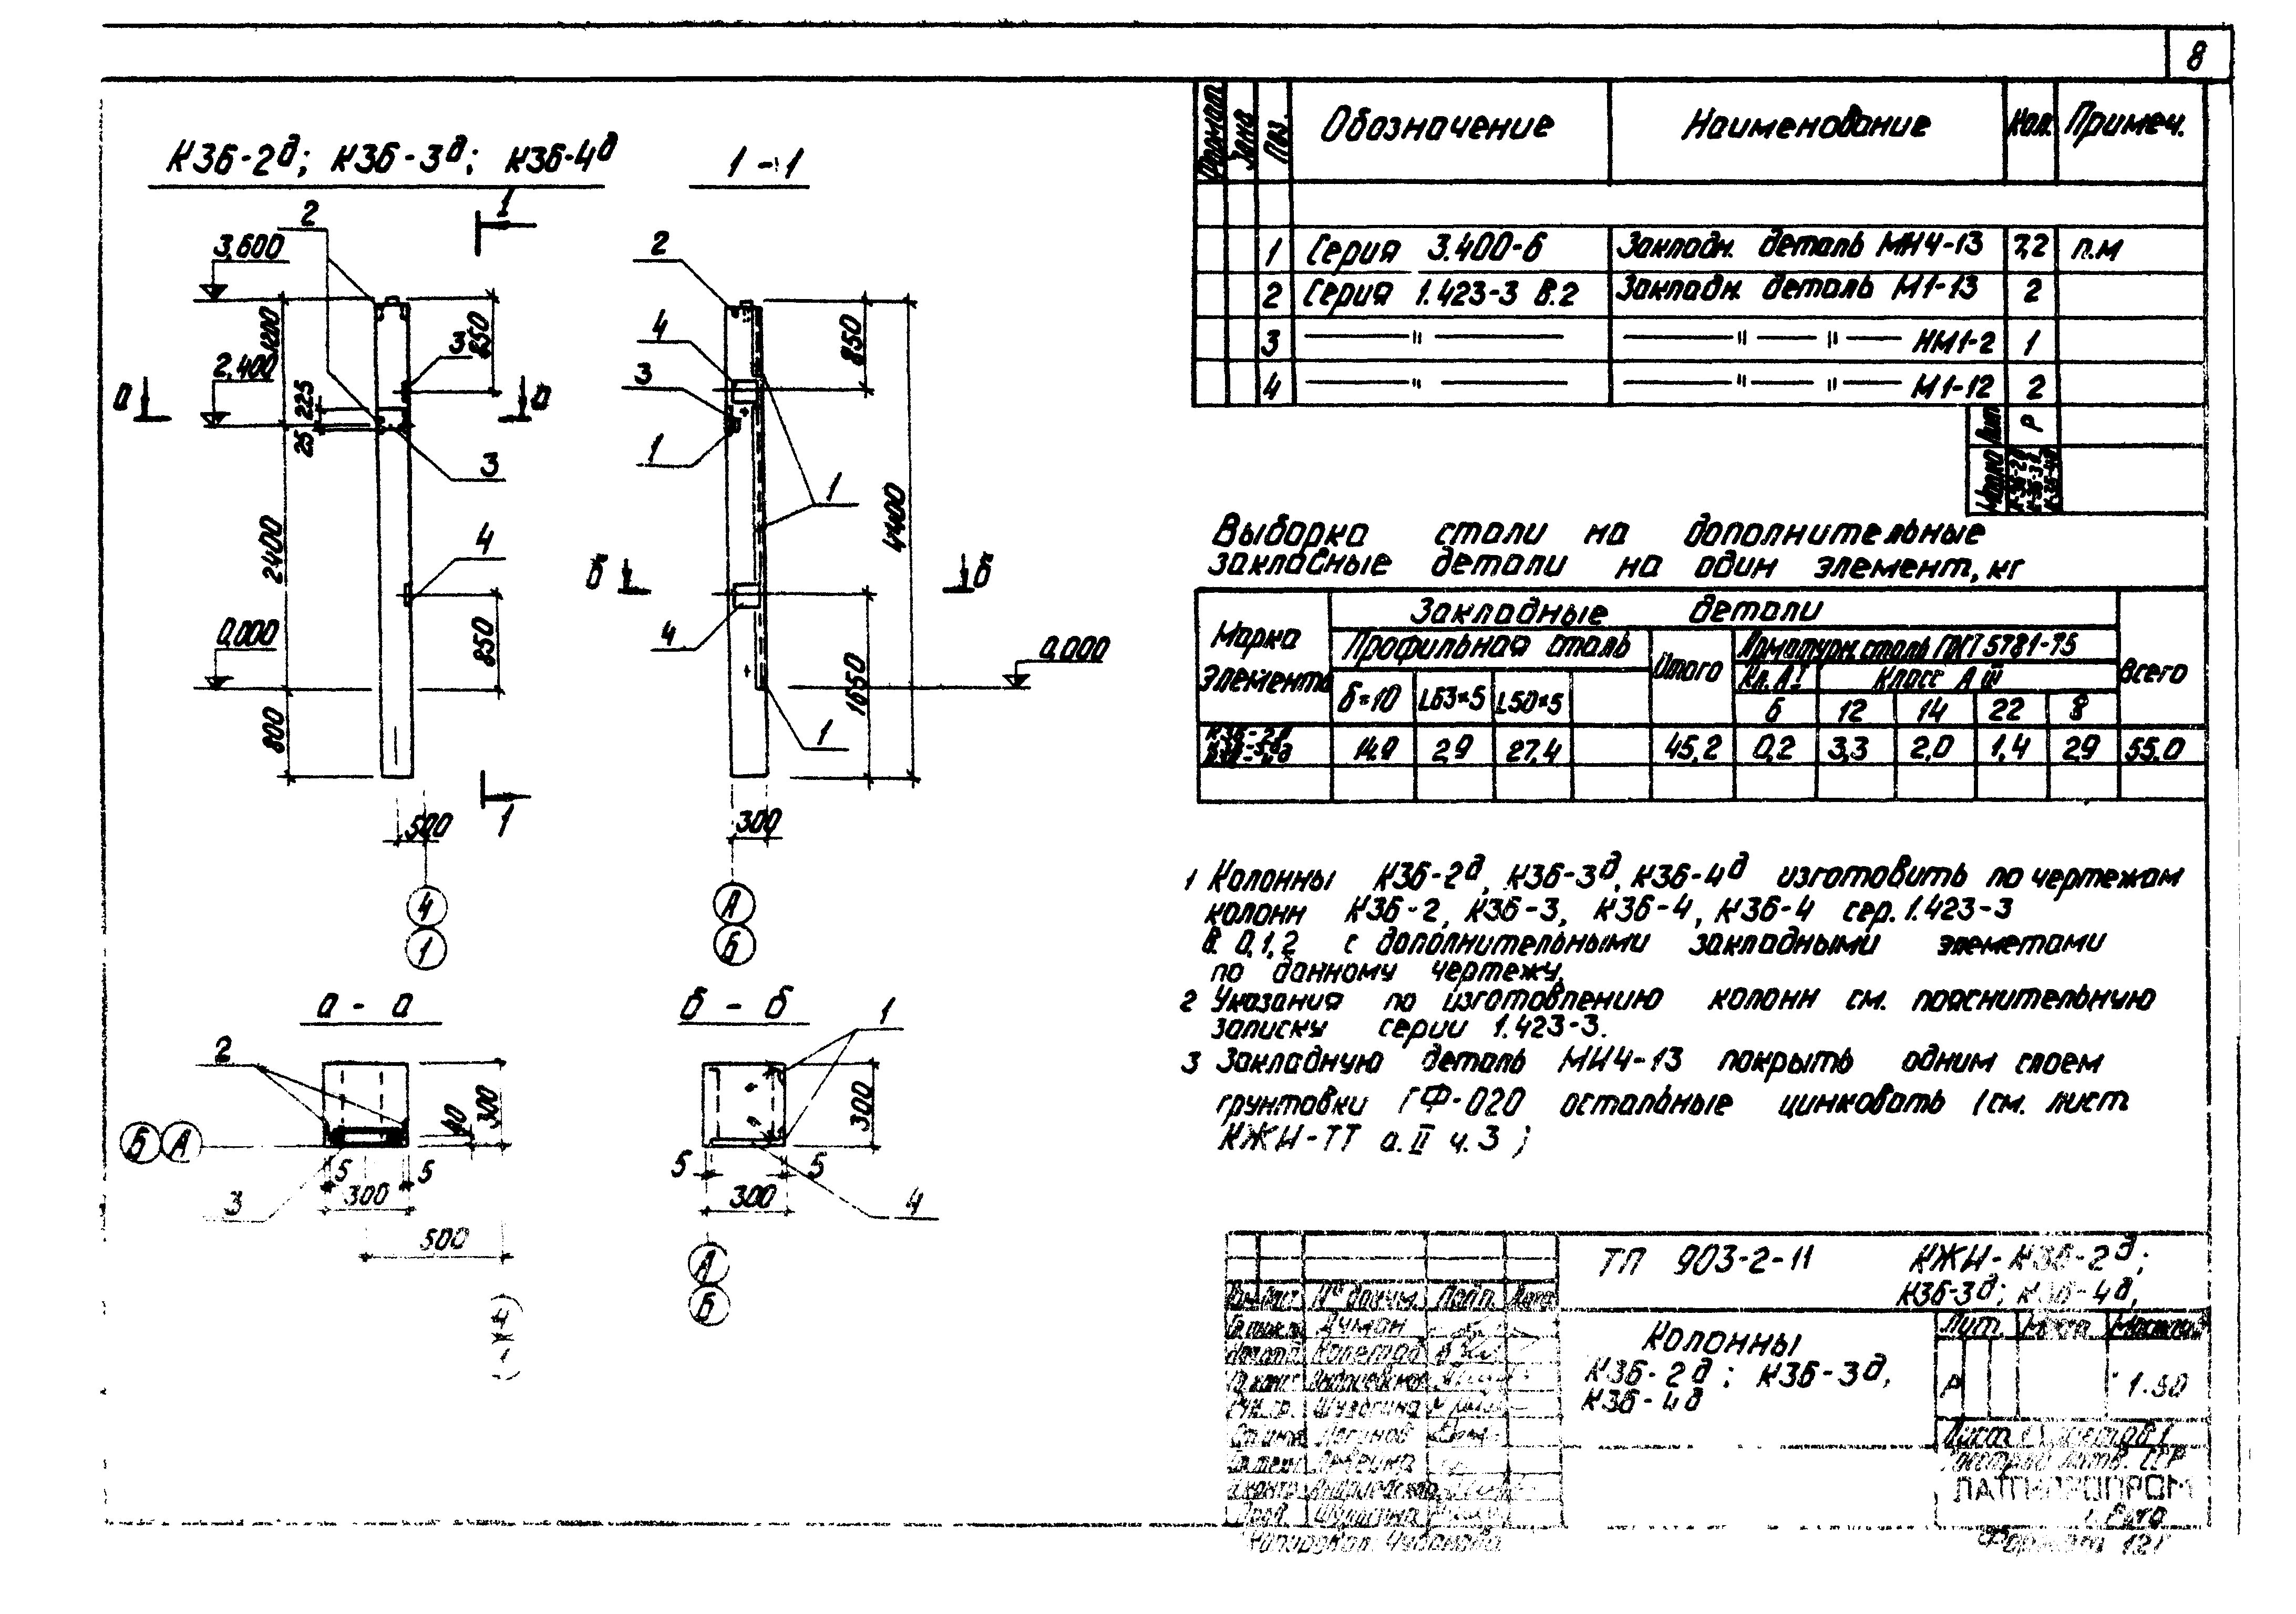 8
К3б-2д; К3б-3д; К3б-4д
1-1
2
1
3,600
1200
3
850
2,400
а
а
225
25
3
2400
4
0,000
850
800
500
1
4
1
2
4
3
1
850
1
4400
б
б
4
0,000
1650
1
300
А
Б
а - а
2
300
40
Б А
5
5
3
300
500
4
1
б - б
1
300
5
5
300
4
А
Б
Формат Зона Поз. Обозначение Наименование Кол. Примеч.
1 Серия 3.400-6 Закладн. деталь МН4-13 7,2 п.м
2 Серия 1.423-3 В.2 Закладн. деталь М1-13 2
3 —"— —"—"— НМ1-2 1
4 —"— —"—"— М1-12 2
Лит Р
Марка К3б-2д К3б-3д К3б-4д
Выборка стали на дополнительные
закладные детали на один элемент, кг
Марка Элемента Закладные детали Всего
Профильная сталь Итого Арматурн. сталь ГОСТ 5781-75
Кл. А I Класс А III
δ=10 L63×5 L50×5 6 12 14 22 8
К3б-2д К3б-3д К3б-4д 14.9 2,9 27,4 45,2 0,2 3,3 2,0 1,4 2,9 55.0
1 Колонны К3б-2д, К3б-3д, К3б-4д изготовить по чертежам
колонн К3б-2, К3б-3, К3б-4, К3б-4 сер. 1.423-3
В. 0,1,2 с дополнительными закладными элеметами
по данному чертежу.
2 Указания по изготовлению колонн см. пояснительную
записку серии 1.423-3.
3 Закладную деталь МН4-13 покрыть одним слоем
грунтовки ГФ-020 остальные цинковать (см. лист
КЖИ-ТТ а. II ч. 3)
ТП 903-2-11 КЖИ-К3б-2д;
К3б-3д; К3б-4д,
№ докум. Подп. Дата
Думан
Шульгина
Логинов
Колонны
К3б-2д; К3б-3д,
К3б-4д
Лит. Масса Масштаб
Р 1:50
Лист Листов 1
Госстрой Латв. ССР
ЛАТГИПРОПРОМ
г. Рига
Копировал:
Формат 12г